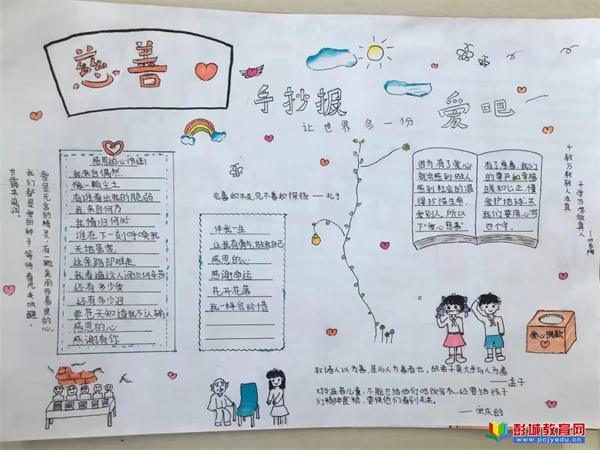 慈善
手抄报
让世界多一份
爱吧
感恩的心(节选)
我来自偶然
像一颗尘土
有谁看出我的脆弱
我来自何方
我情归何处
谁在下一刻呼唤我
天地虽宽
这条路却难走
我看遍这人间坎坷辛苦
还有多少爱
还有多少泪
要苍天知道我不认输
感恩的心
感谢有你
见善如不及,见不善如探汤——孔子
伴我一生
让我有勇气做我自己
感恩的心
感谢命运
花开花落
我一样会珍惜
因为有了爱心
就会感到做人
感到社会的温
得珍惜生命
爱别人,所以
下“爱心慈善”
有了慈善,我们
的尊严和幸福
暖和公正,懂
爱护地球,关
我们要用心写
四个字。
千教万教教人求真
千学万学学做真人
爱是无言的精灵,有一颗美丽而善良的心。
我们都是爱的种子,等待着春风来唤醒,
甘露来滋润。
爱心捐款
取诸人以为善,是与人为善者也,故君子莫大乎与人为善
——孟子
对于孟苦儿童,不能只给他们吃饭穿衣,还要给孩子
们精神食粮,要使他们看到未来。
——宋庆龄
彭城教育网
www.pcjyedu.cn